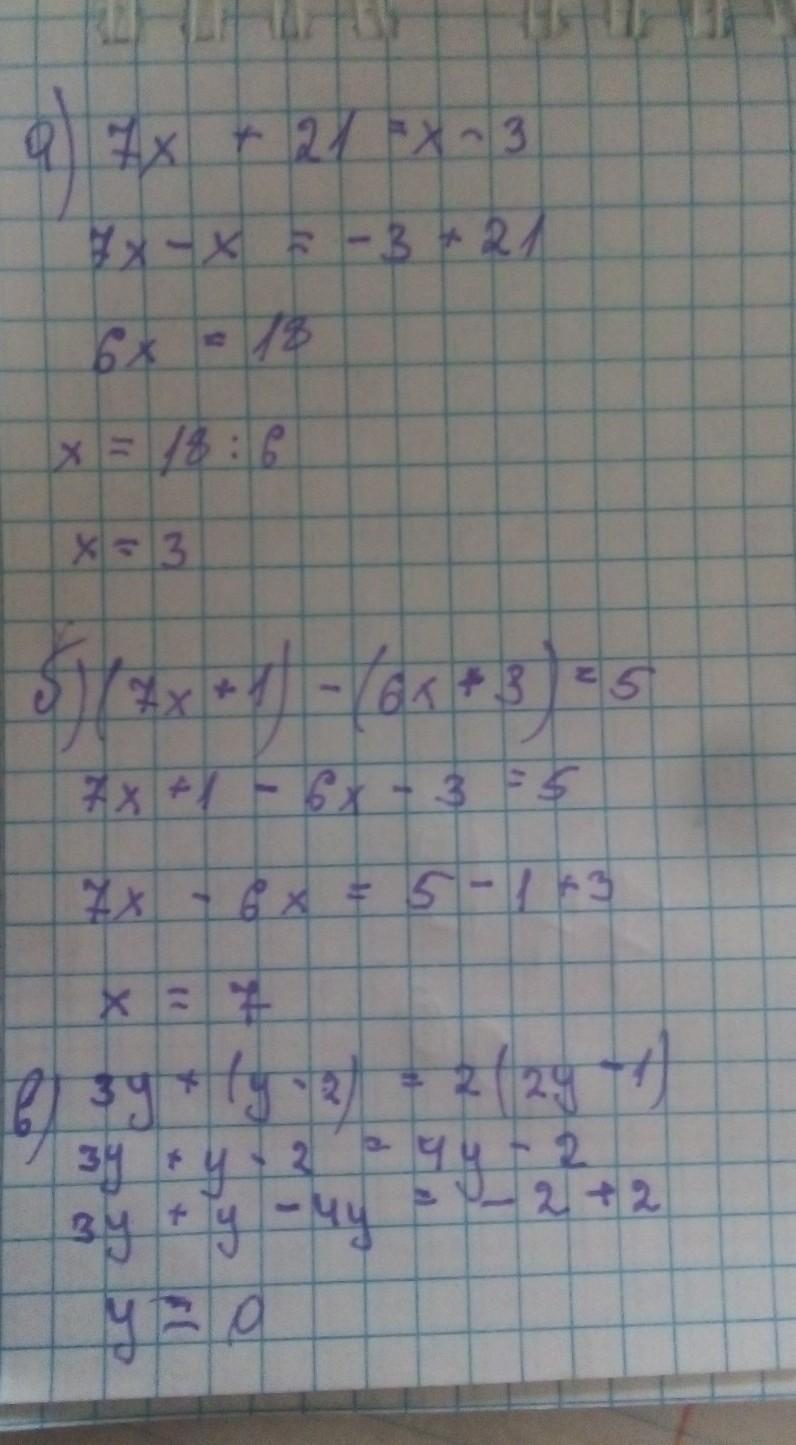 а) 7x + 21 = x - 3
7x - x = -3 + 21
6x = 18
x = 18 : 6
x = 3
б) (7x + 1) - (6x + 3) = 5
7x + 1 - 6x - 3 = 5
7x - 6x = 5 - 1 + 3
x = 7
в) 3y + (y - 2) = 2(2y - 1)
3y + y - 2 = 4y - 2
3y + y - 4y = -2 + 2
y = 0